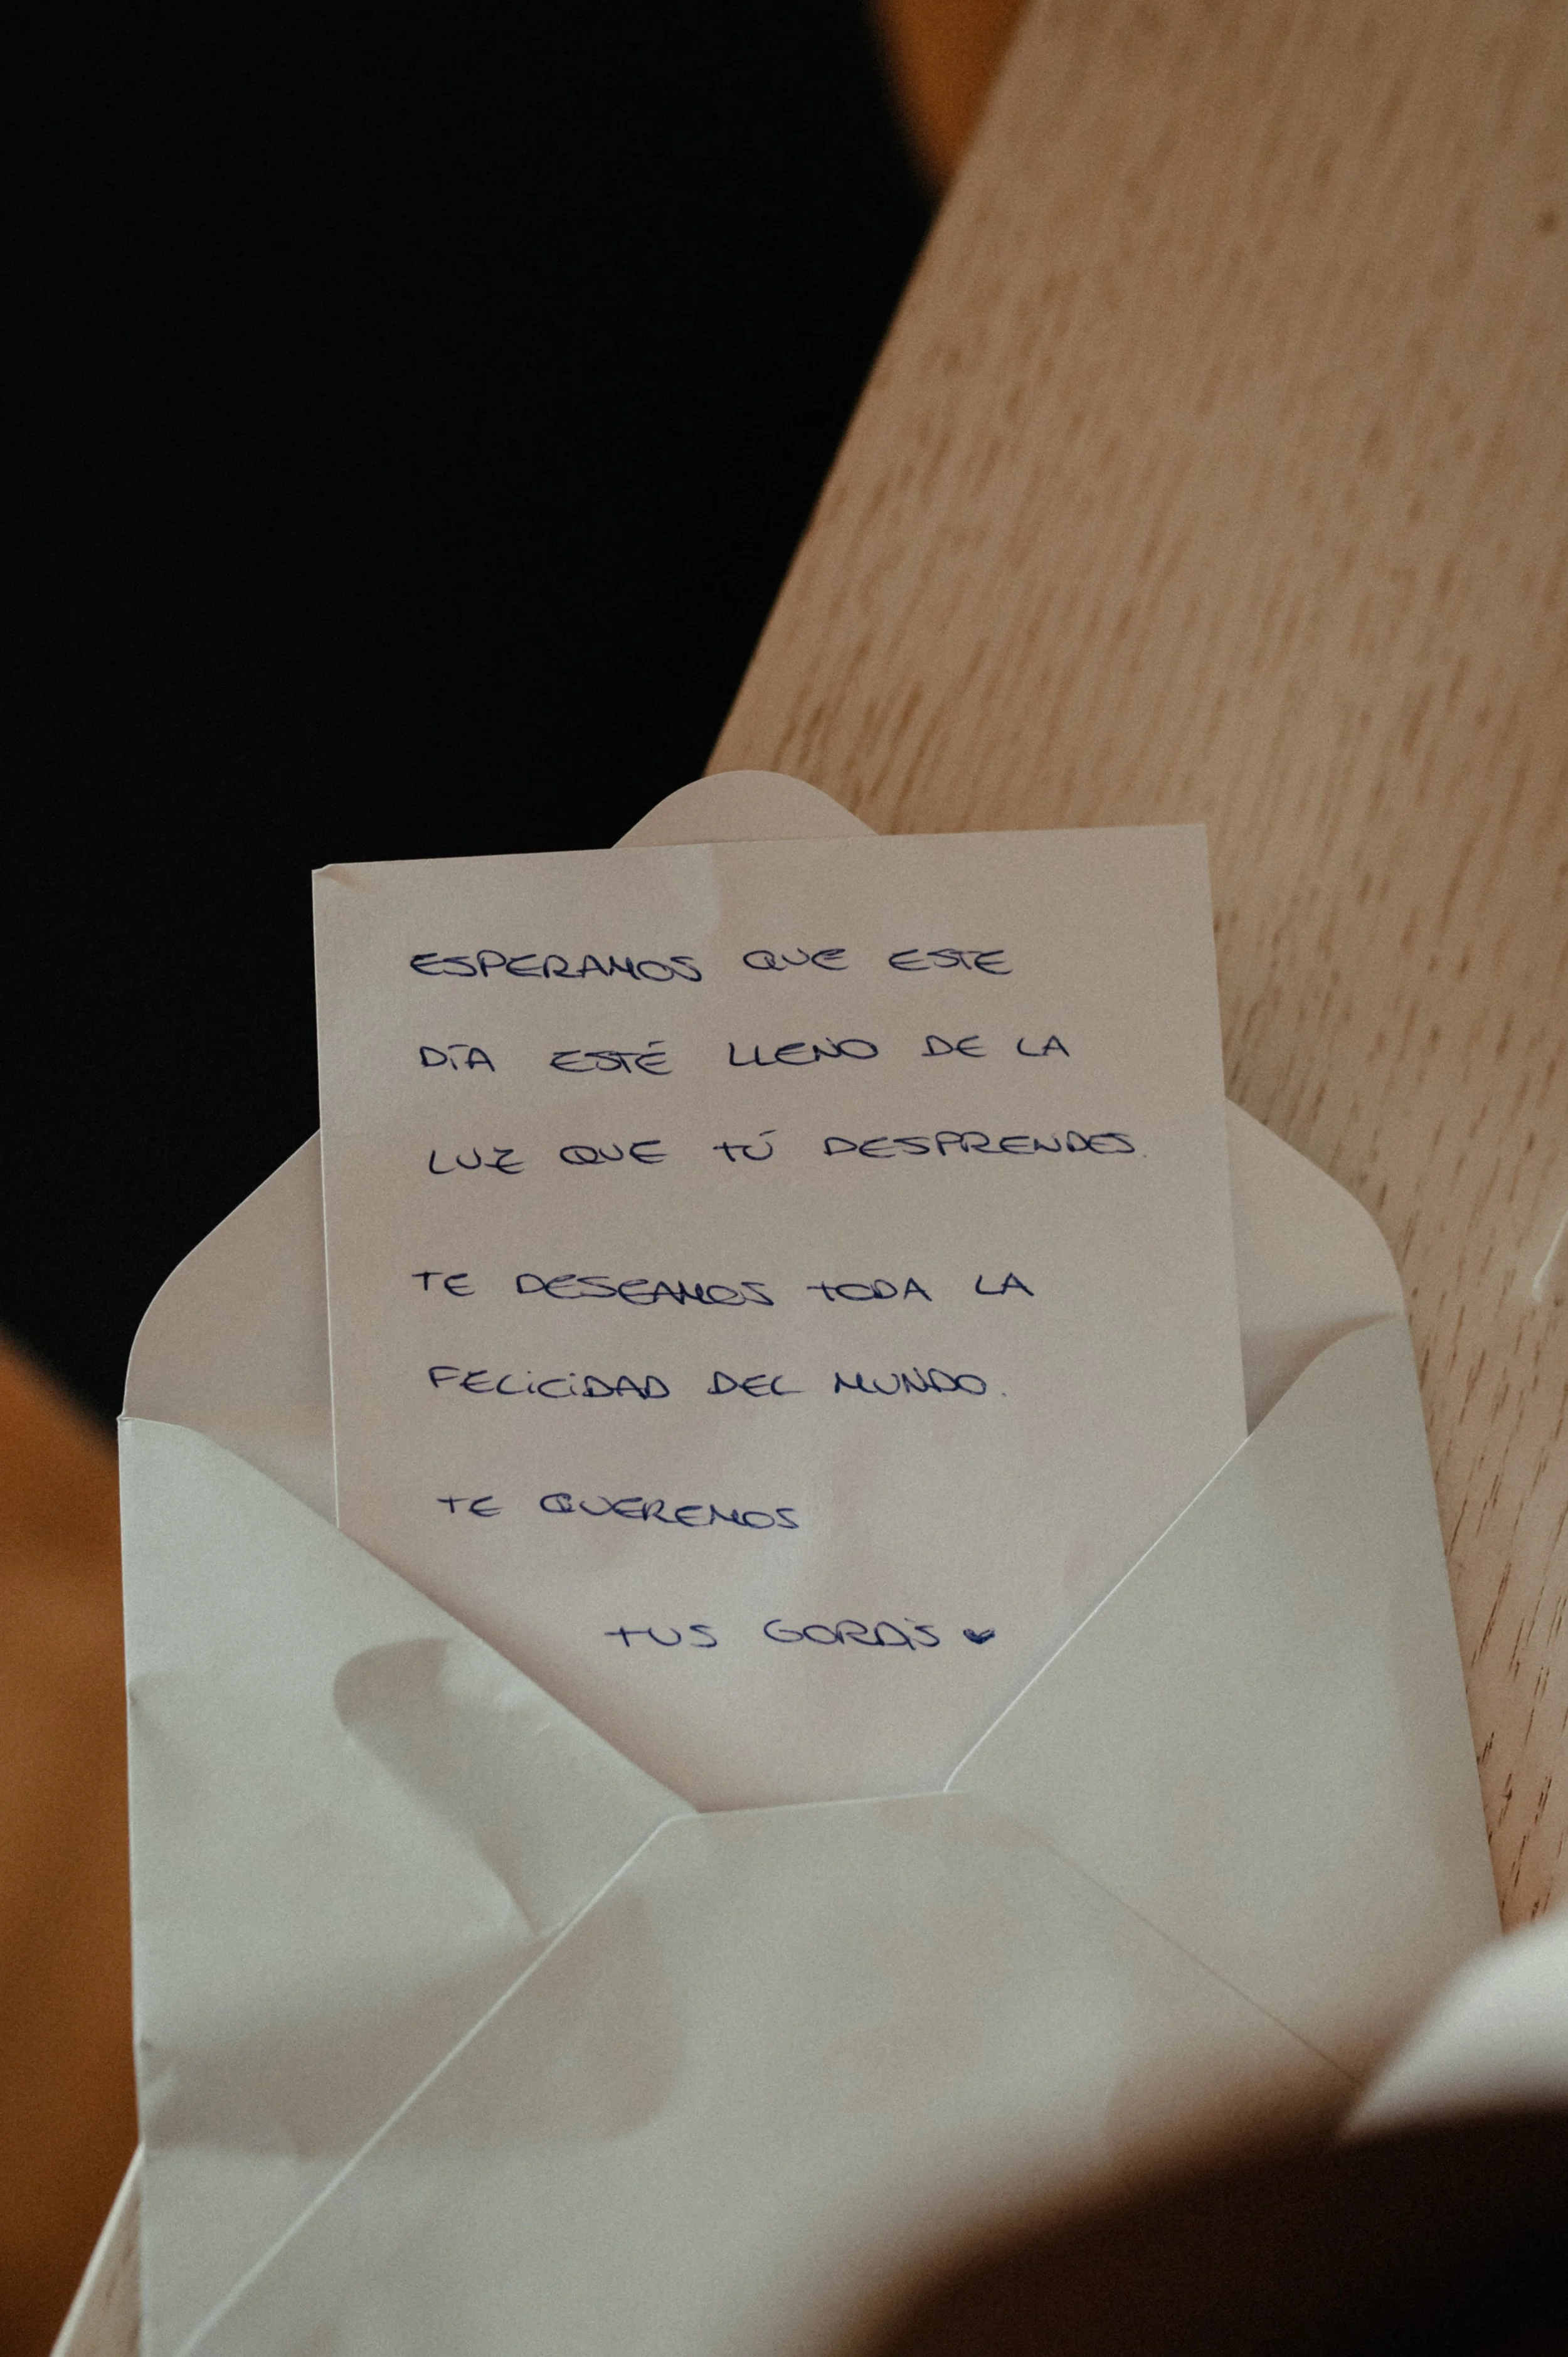 ESPERAMOS QUE ESTE
DÍA ESTÉ LLENO DE LA
LUZ QUE TÚ DESPRENDES.
TE DESEAMOS TODA LA
FELICIDAD DEL MUNDO.
TE QUEREMOS
TUS GORDIS ♥